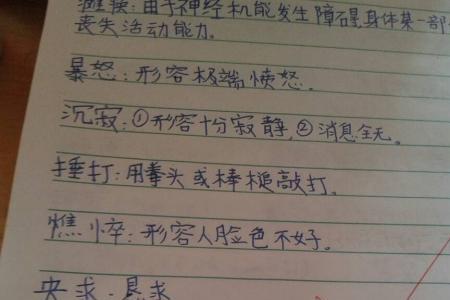 瘫痪:由于神经机能发生障碍,身体某一部分
丧失活动能力。
暴怒:形容极端愤怒。
沉寂:①形容十分寂静,②消息全无。
捶打:用拳头或棒槌敲打。
憔悴:形容人脸色不好。
央求:恳求